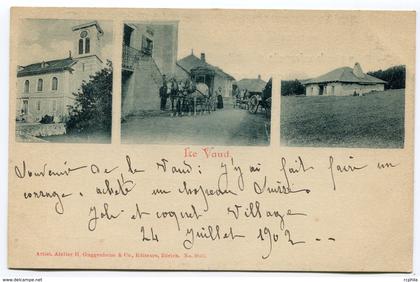 Le Vaud.
Souvenir de la Vaud: j'y ai fait faire un
corsage, acheté un chapeau Suisse
Joli et coquet Village
24 Juillet 1902
Artist. Atelier H. Guggenheim & Co., Editeurs, Zürich. No.